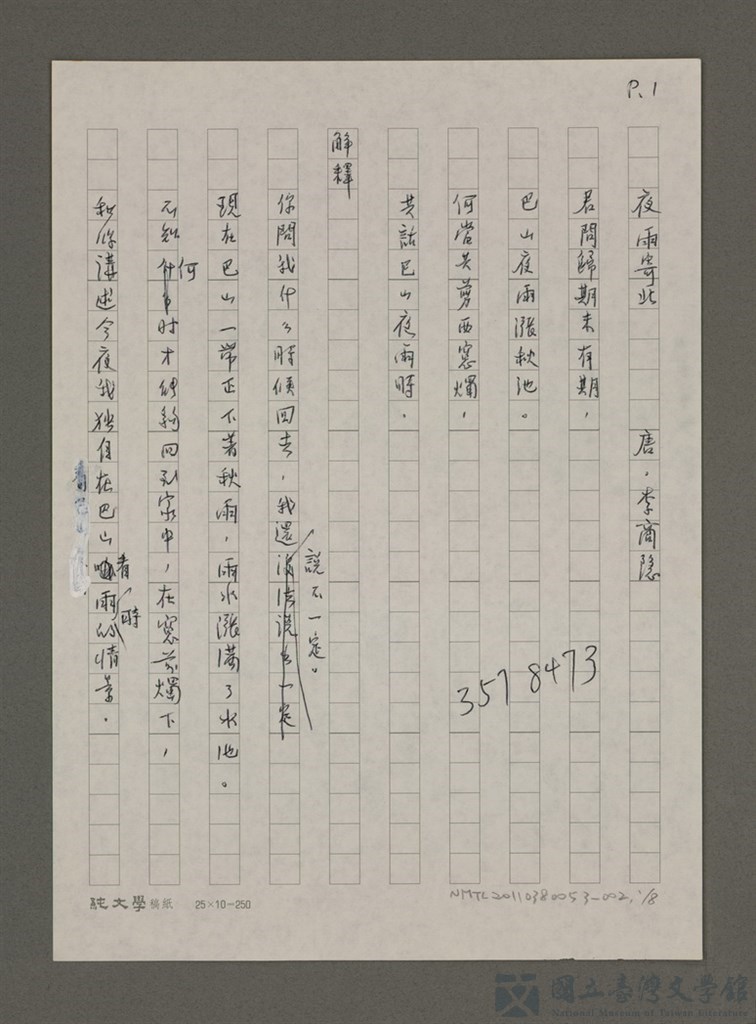 P.1
夜雨寄北 唐。李商隐
君問歸期未有期,
巴山夜雨漲秋池。
何當共剪西窗燭,
共話巴山夜雨時。
解釋
你問我什么時候回去,我還說不一定。
現在巴山一帶正下著秋雨,雨水漲滿了水池。
不知何时才能夠回到家中,在窗前燭下,
和你講述今夜我独自在巴山看雨時的情景。
357 8473
純文學稿紙 25×10=250
NMTL20110380053-002,1/8
國立臺灣文學館
National Museum of Taiwan Literature